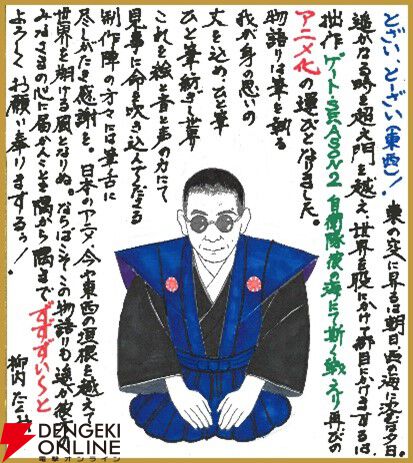 とざい、とーざい(東西)! 東の空に昇るは朝日、西の海に沈むは夕日。
遙かなる時を超え、門を越え、世界を股にかけて御目にかけまするは、
拙作 ゲートSEASON2 自衛隊 彼の海にて、斯く戦えり 再びの
アニメ化の運びとなりました。
物語りは筆を執る
我が身の思いの
丈を込め、ひと筆
ひと筆紡ぎし世界
これを絵と音と声の力にて
見事に命を吹き込んでくださる
制作陣の方々には筆舌に
尽くしがたき感謝を。日本のアニメ、今や東西の垣根を越えて
世界を翔ける風となりぬ。ならば、この物語りも遙か彼方
みなさまの心に届かんことを 隅から隅まで ずずずい〜っと
よろしくお願い奉りまするぅ!
柳内たくみ
DENGEKI
ONLINE
電撃オンライン